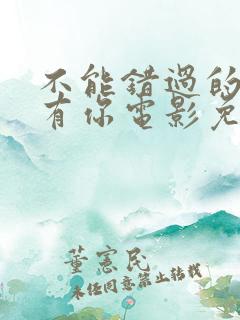 不能错过的
有你电影免
董宪民
未经同意禁止转载